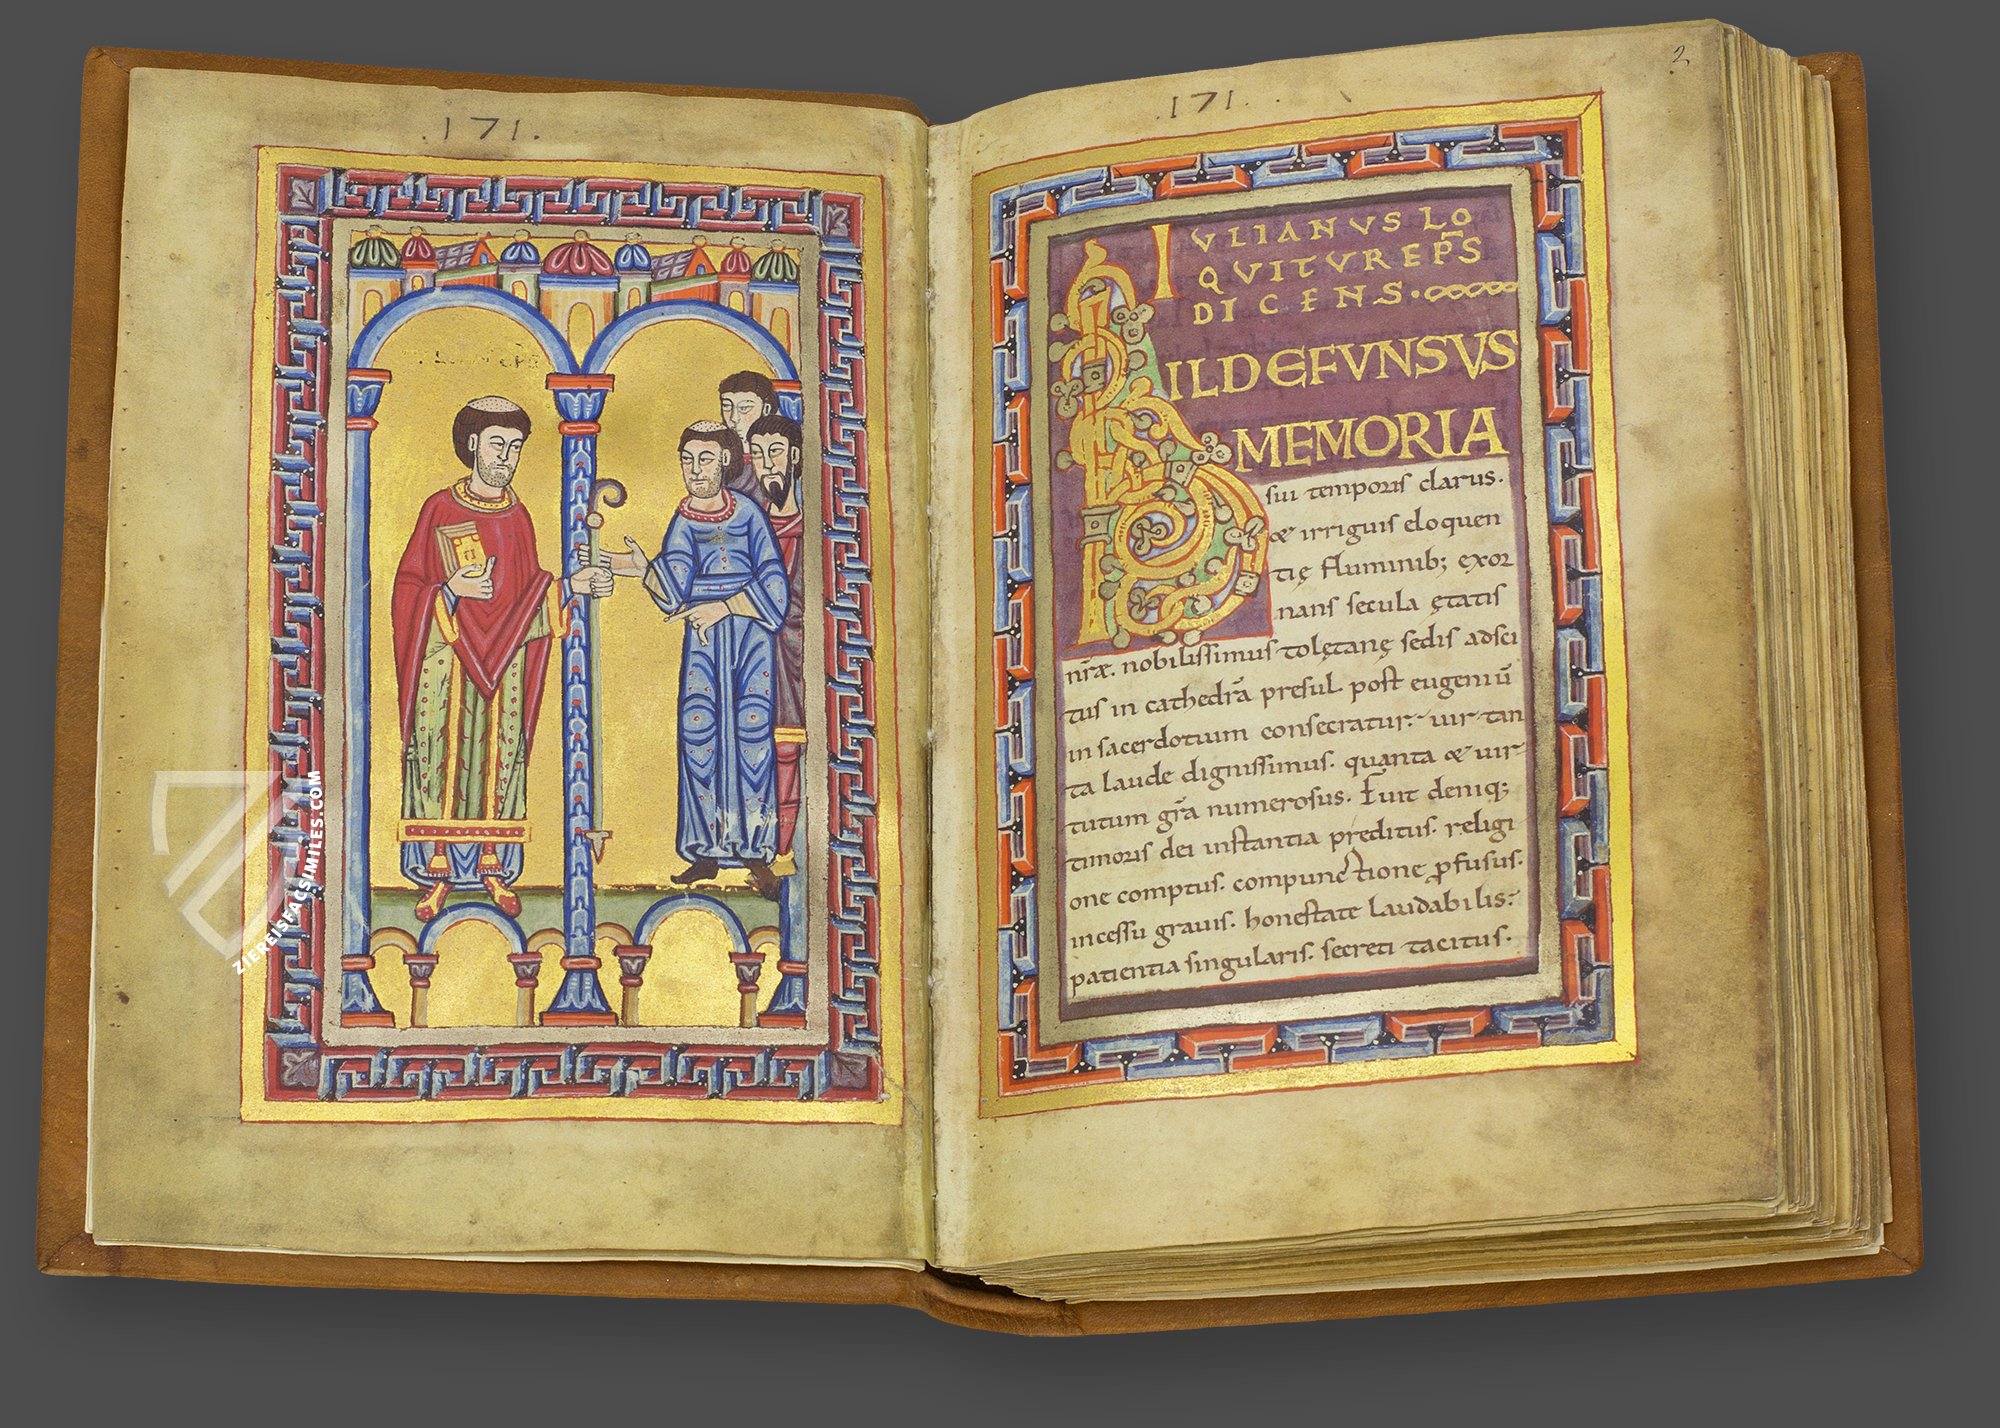 .171.
.171. . .
2
IVLIANVS LO
QVITVR EPS
DICENS.
HILDEFVNSVS
MEMORIA
sui temporis clarus.
& irriguis eloquen
tię fluminib; exor
nans secula ętatis
nr̄ae. nobilissimus tolętanę sedis adsci
tus in cathedrā presul. post eugeniū
in sacerdotium consecratur. uir tan
ta laude dignissimus. quanta & uir
tutum gr̄a numerosus. Fuit deniq;
timoris dei instantia preditus. religi
one comptus. compunctione ꝓfusus.
incessu grauis. honestate laudabilis.
patientia singularis. secreti tacitus.
ZIEREISFACSIMILES.COM